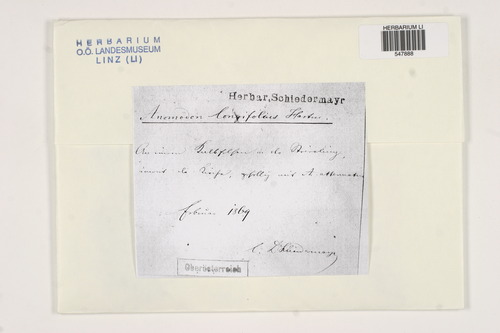 HERBARIUM
O.Ö. LANDESMUSEUM
LINZ (LI)
HERBARIUM LI
547888
Herbar. Schiedermayr
Anomodon longifolius Hartm.
An einem in der
mit A. attenuatus
Februar 1869
C. Schiedermayr
Oberösterreich